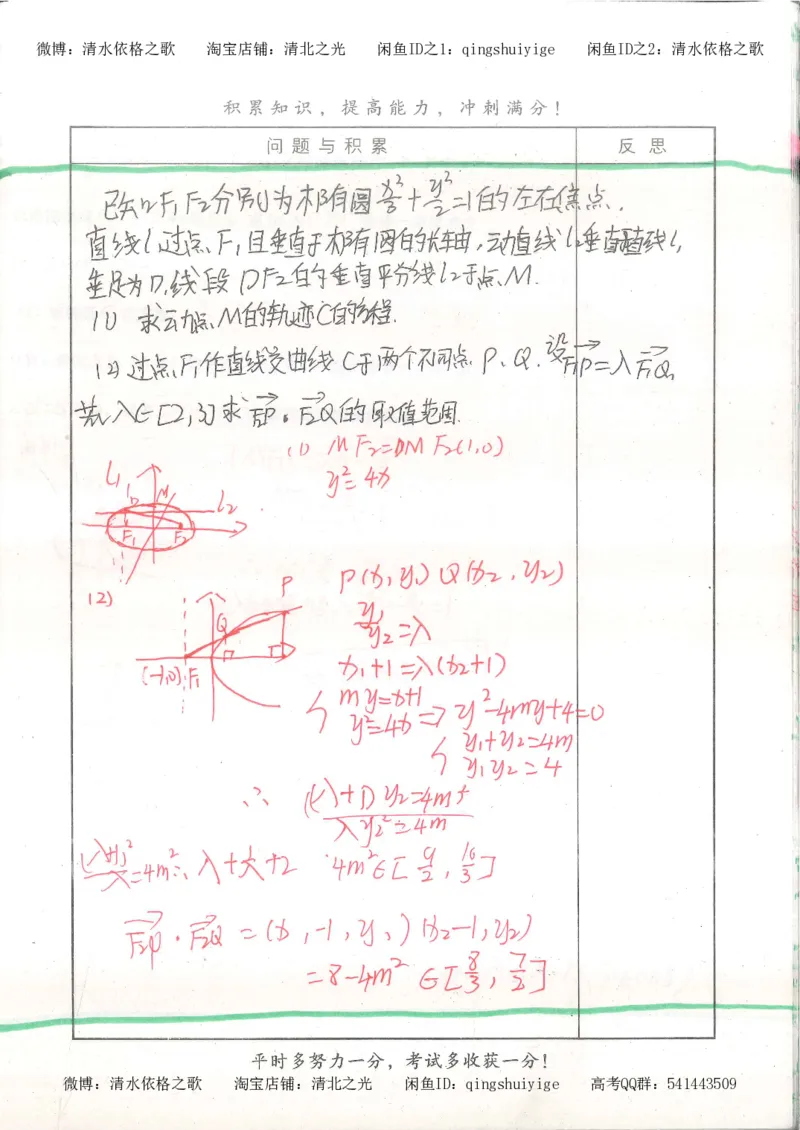 微博：清水依格之歌 淘宝店铺：清北之光 闲鱼ID之1：qingshuiyige 闲鱼ID之2：清水依格之歌
积累知识，提高能力，冲刺满分！
问题与积累 反思
已知F₁F₂分别为椭圆x²/3+y²/2=1的左右焦点.
直线l₁过点F₁且垂直于椭圆的长轴,动直线l₂垂直直线l₁
垂足为D,线段DF₂的垂直平分线l₂于点M.
(1) 求动点M的轨迹C的方程.
(2)过点F₁作直线交曲线C于两个不同点P、Q.设F₁P=λF₁Q,
若λ∈[2,3]求F₂P·F₂Q的取值范围.
(1) MF₂=DM F₂(1,0)
y²=4x
l₁
D M l₂
F₁ F₂
(2)
P
Q
(-1,0) F₁
P(x₁y₁) Q(x₂,y₂)
y₁/y₂=λ
x₁+1=λ(x₂+1)
{ my=x+1
y²=4x ⇒ y²-4my+4=0
{ y₁+y₂=4m
y₁y₂=4
∴ (λ+1)y₂=4m
λy₂²=4m
(λ+1)²/λ=4m²∴ λ+1/λ+2 4m²∈[9/2,16/3]
F₂P·F₂Q=(x₁-1,y₁)(x₂-1,y₂)
=8-4m²∈[8/3,7/2]
平时多努力一分，考试多收获一分！
微博：清水依格之歌 淘宝店铺：清北之光 闲鱼ID：qingshuiyige 高考QQ群：541443509